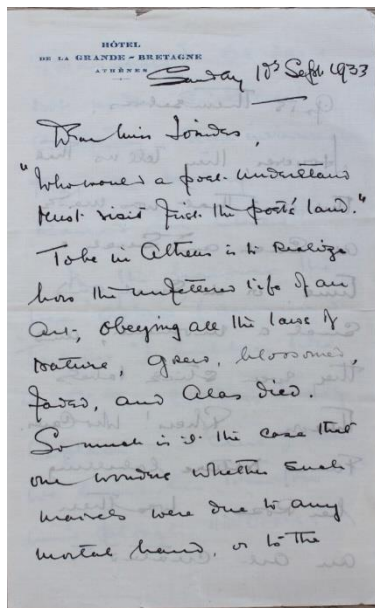 HÔTEL
DE LA GRANDE-BRETAGNE
ATHÈNES
Sunday 10th Sept 1933
Dear Miss
"Who would a poet understand
Must visit first the poet's land."
To be in Athens is to realize
how the unfettered life of an
Art, obeying all the laws of
Nature, grew, blossomed,
faded, and Alas died.
So much is it the case that
one wonders whether such
marvels were due to any
mortal hand, or to the